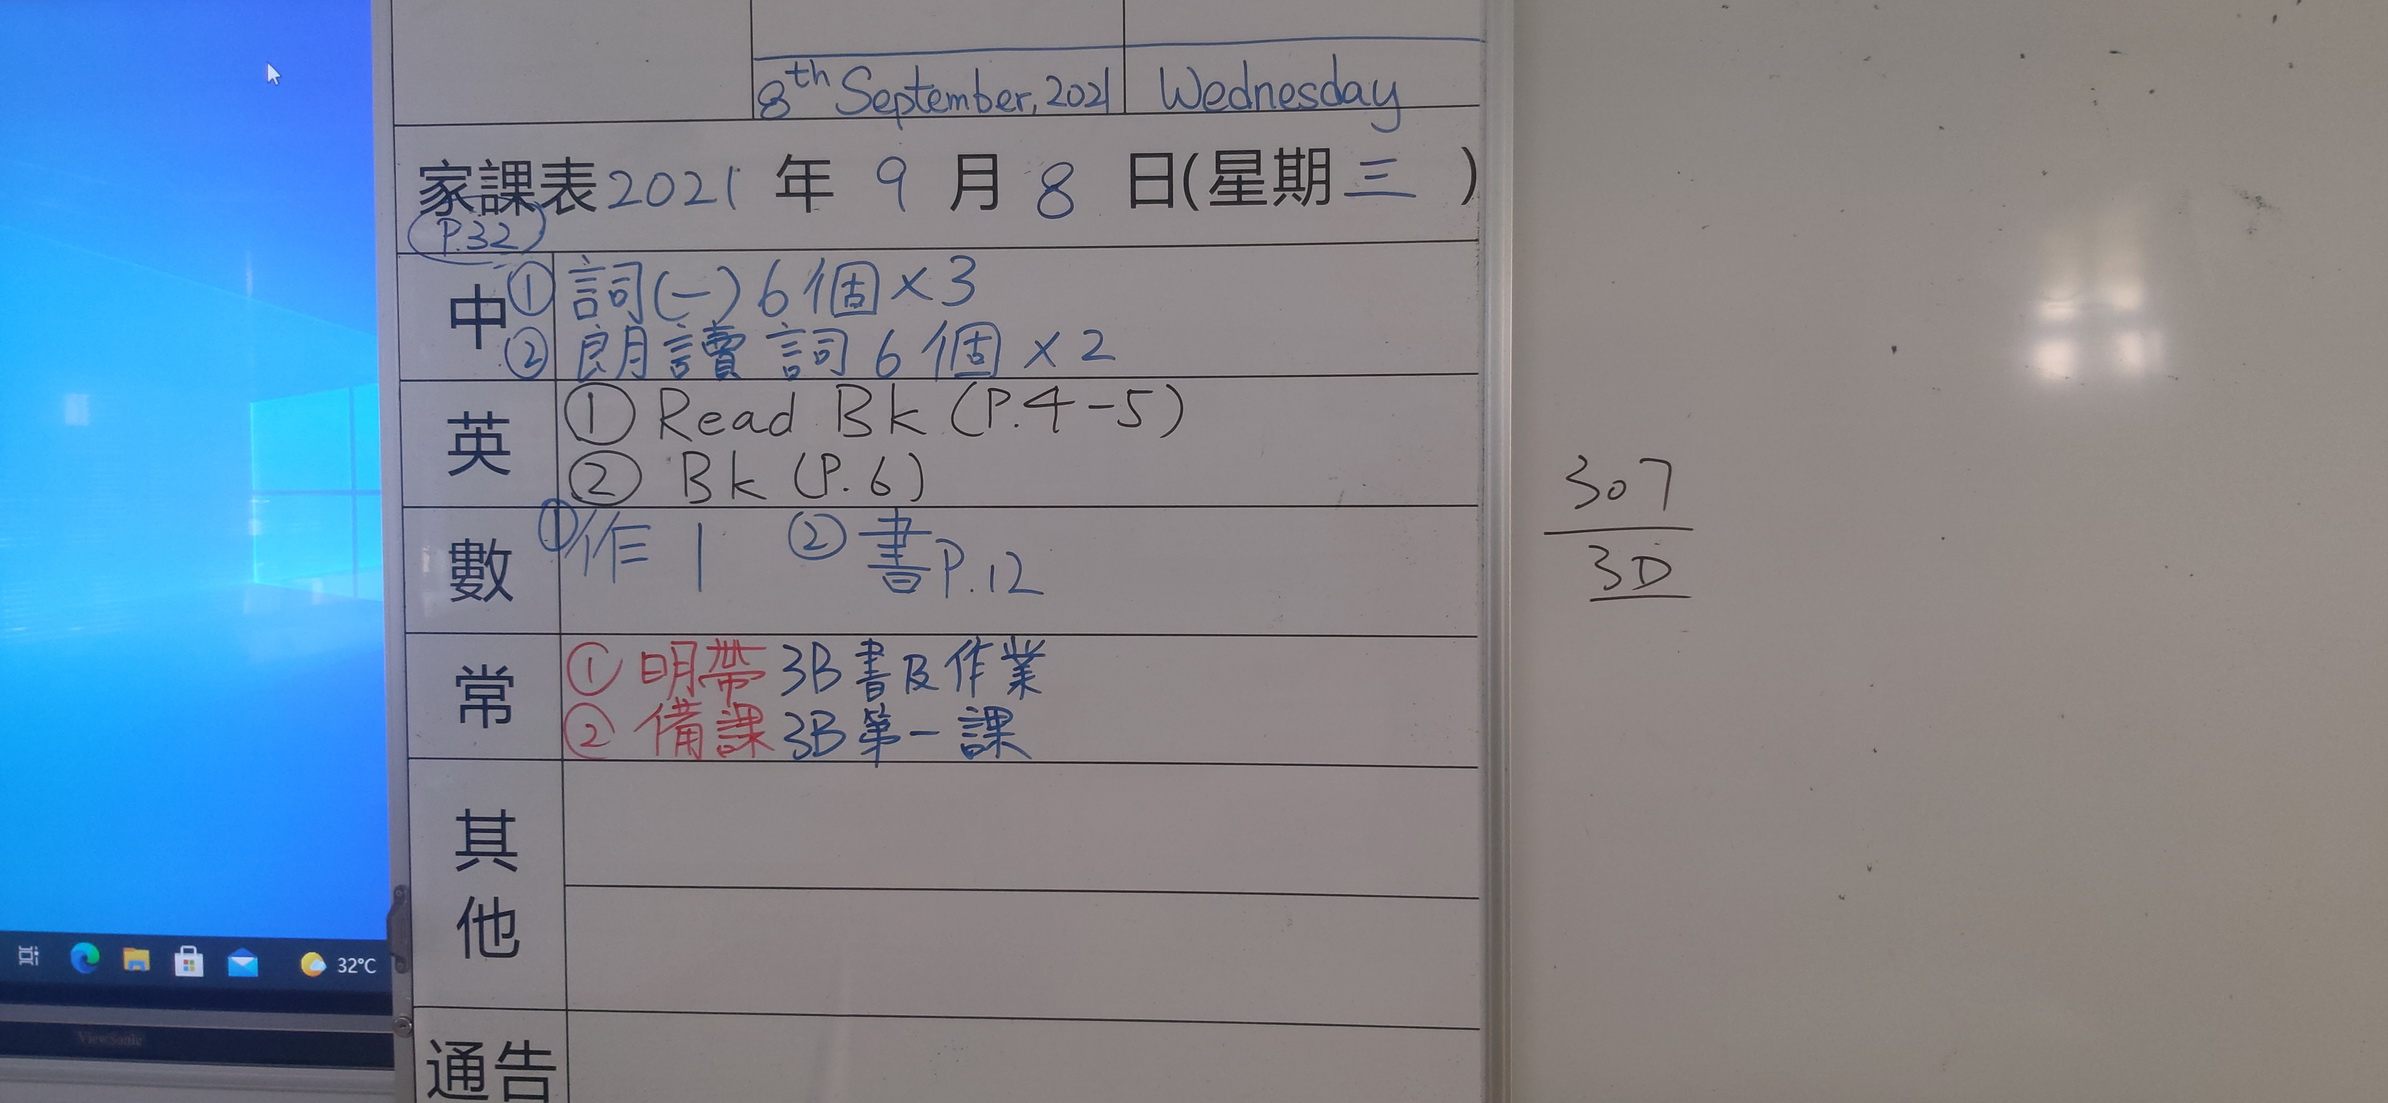 8th September, 2021 Wednesday
家課表2021年9月8日(星期三)
P.32
中 ① 詞(一)6個×3
② 朗讀詞6個×2
英 ① Read Bk (P.4-5)
② Bk (P.6)
數 ①作1 ②書P.12
常 ① 明帶3B書及作業
② 備課3B第一課
其他
通告
307
3D
32°C
ViewSonic